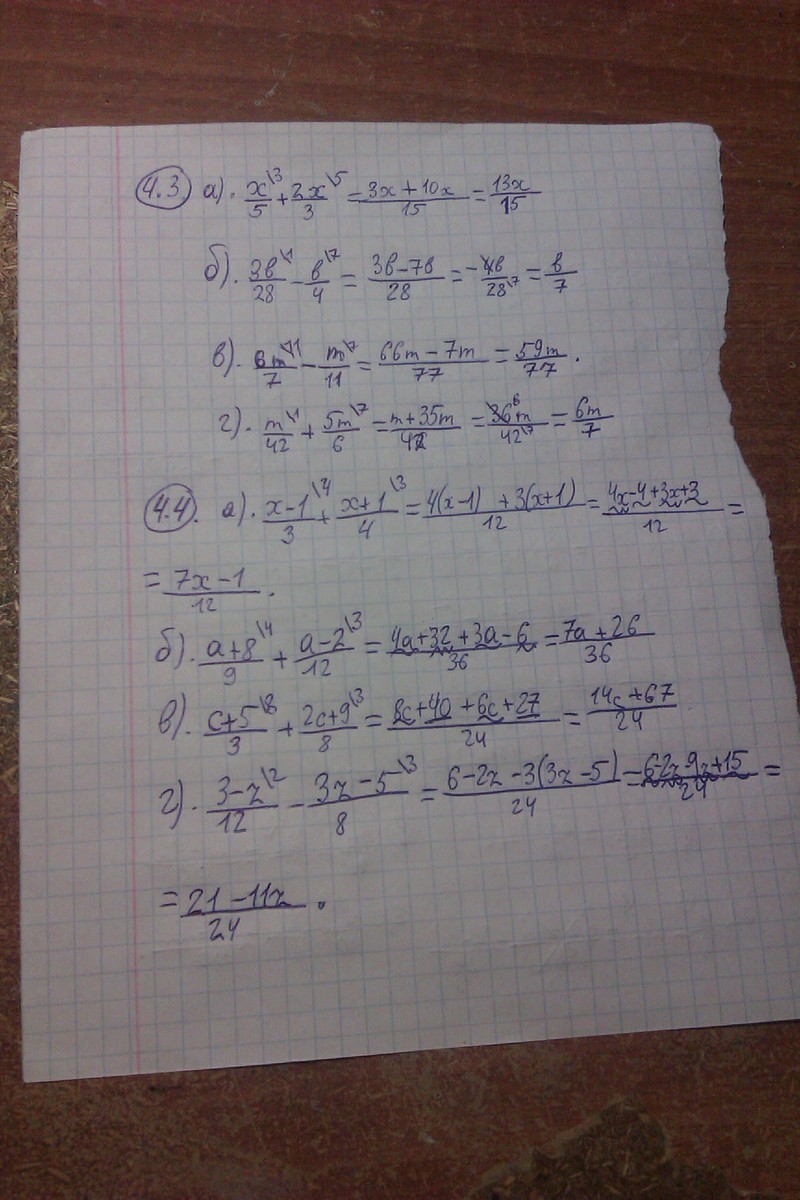 4.3 а). x\3/5 + 2x\5/3 = 3x+10x/15 = 13x/15
б). 3в\1/28 - в\7/4 = 3в-7в/28 = -4в/28\7 = в/7
в). 6m\11/7 - m\7/11 = 66m-7m/77 = 59m/77.
г). m\1/42 + 5m\7/6 = m+35m/42 = 36\6m/42\7 = 6m/7
4.4. а). x-1\4/3 + x+1\3/4 = 4(x-1)+3(x+1)/12 = 4x-4+3x+3/12 =
= 7x-1/12.
б). a+8\4/9 + a-2\3/12 = 4a+32+3a-6/36 = 7a+26/36
в). c+5\8/3 + 2c+9\3/8 = 8c+40+6c+27/24 = 14c+67/24
г). 3-z\2/12 - 3z-5\3/8 = 6-2z-3(3z-5)/24 = 6-2z-9z+15/24 =
= 21-11z/24.